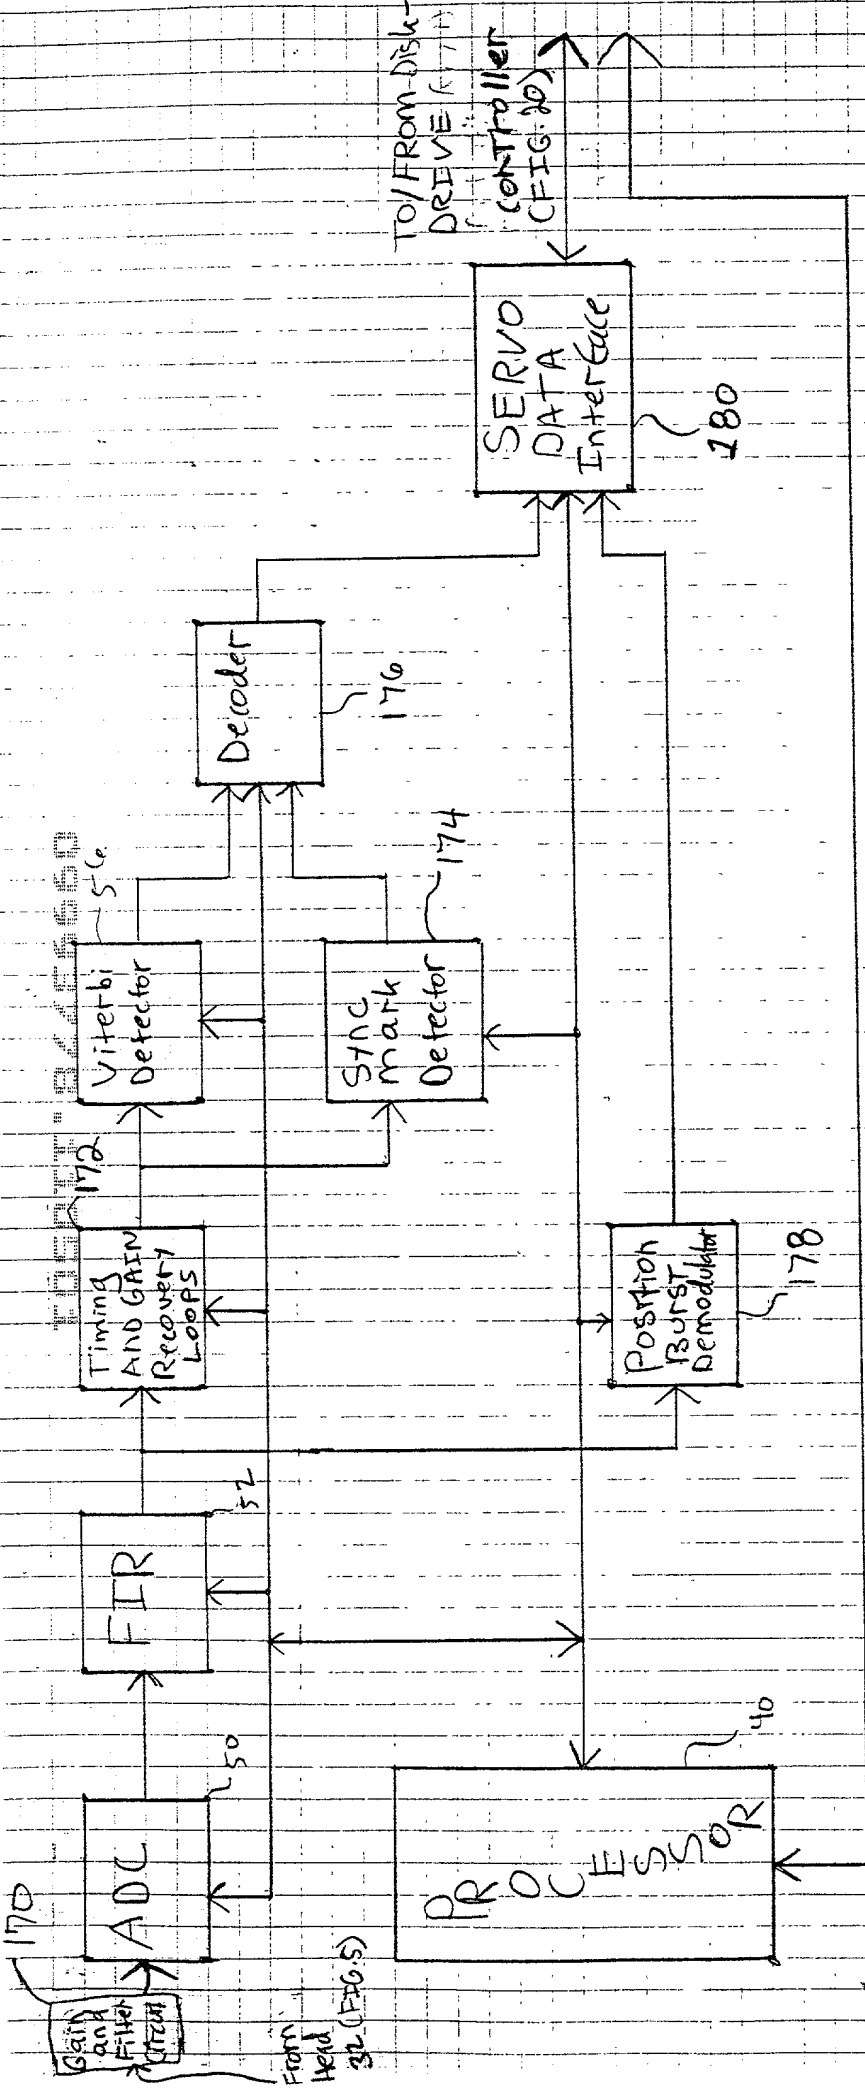 170
Gain
and
Filter
Circuit
From
Head
32 (FIG.5)
ADC
50
FIR
52
Timing
AND GAIN
Recovery
LOOPS
172
Viterbi
Detector
56
Sync
Mark
Detector
174
Decoder
176
Position
Burst
Demodulator
178
PROCESSOR
40
SERVO
DATA
Interface
180
TO/FROM Disk-
DRIVE
controller
(FIG. 20)